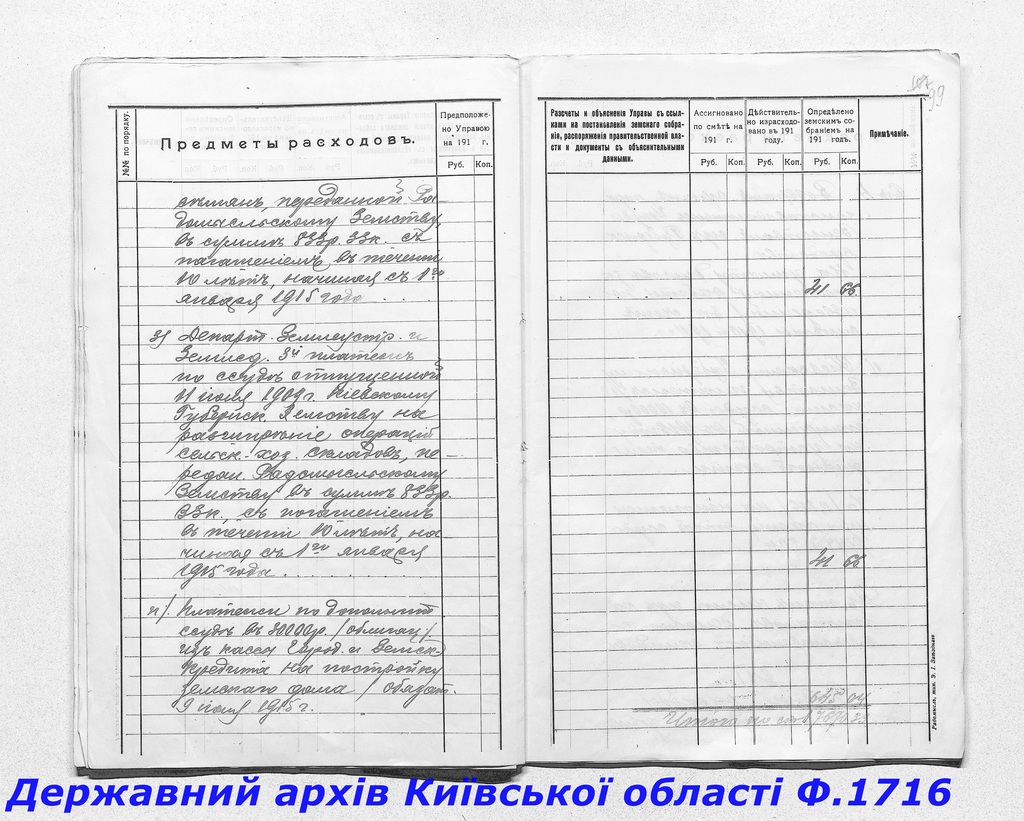 107
99
№№ по порядку.
Предметы расходовъ.
Предположе-
но Управою
на 191 г.
Руб. Коп.
Разсчеты и объясненія Управы съ ссыл-
ками на постановленія земскаго собра-
нія, распоряженія правительственной вла-
сти и документы съ объяснительными
данными.
Ассигновано
по смѣтѣ на
191 г.
Руб. Коп.
Дѣйствитель-
но израсходо-
вано въ 191
году.
Руб. Коп.
Опредѣлено
земскимъ со-
браніемъ на
191 годъ.
Руб. Коп.
Примѣчаніе.
переданной Ра-
домысльскому Земству,
въ суммѣ 833р. 33к. съ
погашеніемъ въ теченіи
10 лѣтъ, начиная съ 1го
января 1915 года . . . .
21 66
з) Департ. Землеустр. и
Землед. 3й платежъ
по ссудѣ отпущенной
11 іюля 1909 г. Кіевскому
Губернск. Земству на
расширеніе операцій
сельск.-хоз. складовъ, пе-
редан. Радомысльскому
Земству въ суммѣ 833р.
33к., съ погашеніемъ
въ теченіи 10 лѣтъ, на-
чиная съ 1го января
1915 года . . . . . .
21 66
и) Платежи по дополнит
ссудѣ въ 20000р. /облигац/
изъ кассы Город. и Земск.
Кредита на постройку
земскаго дома / обязат.
9 іюля 1915 г.
645 04
Итого по ст
Радомысль, тип.
Державний архів Київської області Ф.1716